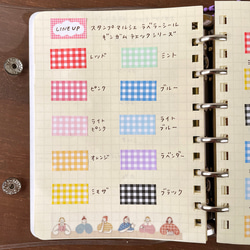 LINE UP
スタンプマルシェ ラベラーシール
ギンガムチェックシリーズ
レッド ミント
ピンク ブルー
ライトピンク ライトブルー
オレンジ ラベンダー
ミモザ ブラック